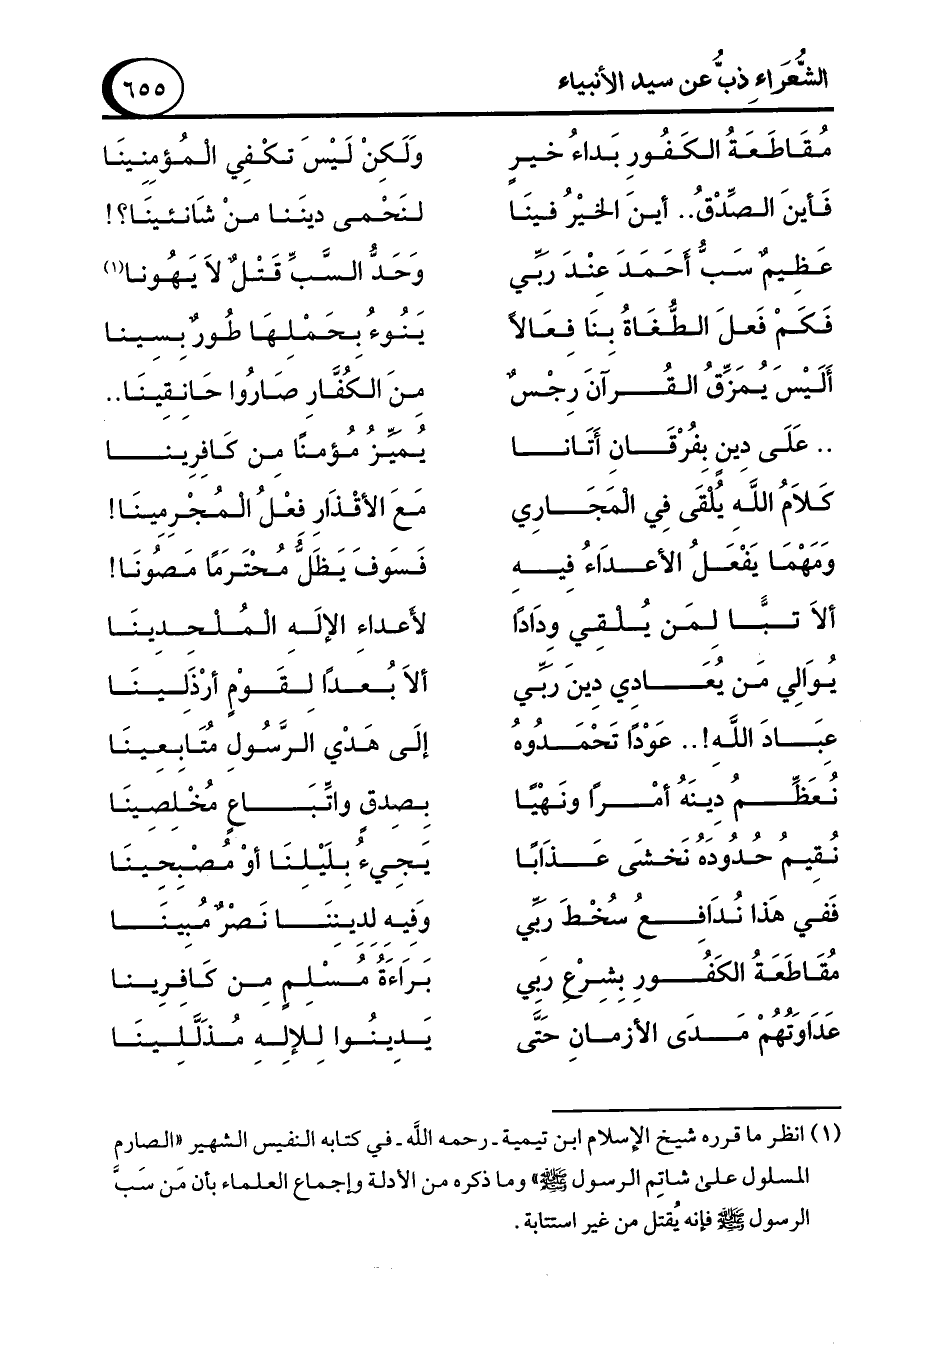 الشُّعَرَاءِ ذبٌّ عن سيد الأنبياء ٦٥٥
مُقَاطَعَةُ الكَفُورِ بَدَاءُ خَيرٍ وَلَكِنْ لَيْسَ تكْفي الْمُؤمنِينَا
فَأينَ الصِّدْقُ.. أينَ الخَيْرُ فينَا لنَحْمى دينَنا منْ شَانئينَا؟!
عَظِيمٌ سَبُّ أحَمَدَ عِنْدَ رَبِّي وَحَدُّ السَّبِّ قَتْلٌ لاَ يَهُونا(١)
فَكَمْ فَعلَ الطُّغَاةُ بِنَا فِعَالاً يَنُوءُ بِحَمْلِهَا طُورٌ بِسِينا
أَلَيْسَ يُمَزِّقُ القُرآنَ رِجْسٌ مِنَ الكُفَّارِ صَارُوا حَانِقِينَا..
.. عَلَى دِينٍ بِفُرْقَانٍ أَتَانَا يُمَيِّزُ مُؤمنًا مِن كَافِرِينَا
كَلاَمُ اللَّهِ يُلْقَى فِي الْمَجَارِي مَعَ الأقْذَارِ فعْلُ الْمُجْرِمينَا!
وَمَهْمَا يَفْعَلُ الأعْداءُ فِيهِ فَسَوفَ يَظَلُّ مُحْتَرمًا مَصُونَا!
ألاَ تبًّا لِمَن يُلْقِي وِدَادًا لأعداءِ الإلَهِ الْمُلْحِدِينَا
يُوَالِي مَن يُعَادِي دينَ رَبِّي ألاَ بُعدًا لِقَوْمٍ أرْذَلِينَا
عِبَادَ اللَّهِ!.. عَوْدًا تَحْمَدُوهُ إلَى هَدْيِ الرَّسُولِ مُتَابِعِينَا
نُعَظِّمُ دِينَهُ أمْرًا ونَهْيًا بِصِدقٍ واتِّبَاعٍ مُخْلِصِينَا
نُقيمُ حُدُودَهُ نَخشَى عَذَابًا يَجيءُ بِلَيْلنَا أوْ مُصْبِحينَا
فَفي هَذا نُدَافِعُ سُخْطَ رَبِّي وَفِيهِ لِدِينِنَا نَصْرٌ مُبِينَا
مُقَاطَعَةُ الكَفُورِ بِشرْعِ رَبِي بَرَاءَةُ مُسْلِمٍ مِن كَافِرِينا
عَدَاوَتُهُمْ مَدَى الأزمانِ حَتَّى يَدِينُوا لِلإلهِ مُذَلَّلِينَا
(١) انظر ما قرره شيخ الإسلام ابن تيمية ـ رحمه اللَّه ـ في كتابه النفيس الشهير «الصارم
المسلول على شاتِم الرسول ﷺ» وما ذكره من الأدلة وإجماع العلماء بأن مَن سَبَّ
الرسول ﷺ فإنه يُقتل من غير استتابة.